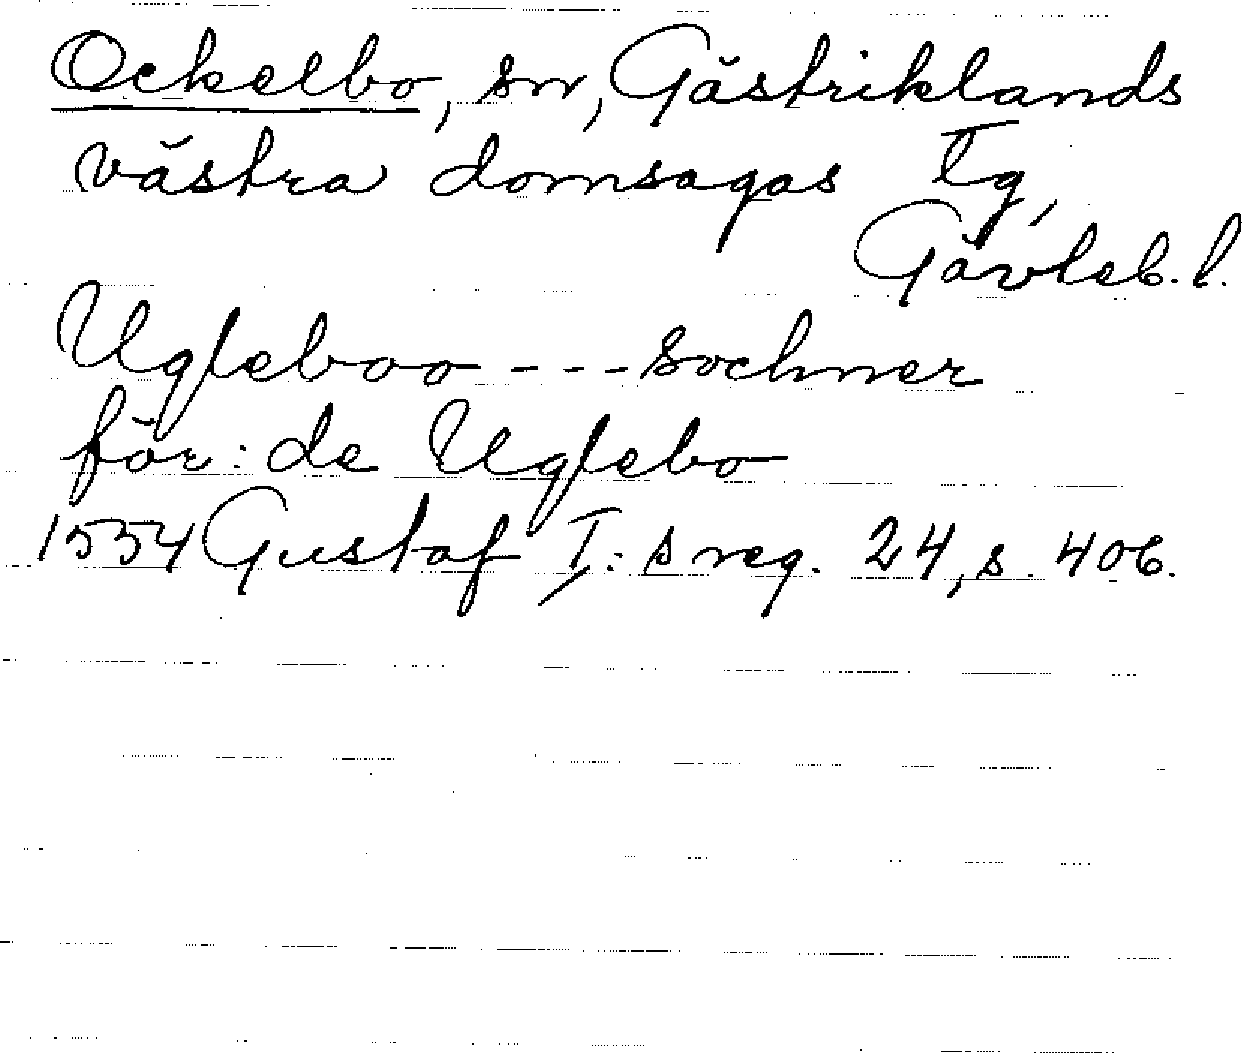 Ockelbo, sn, Gästriklands
västra domsagas Tg,
Gävleb. l.
Ugleboo - - - sochner
för: de Uglebo
1554 Gustaf I:s reg. 24, s. 406.